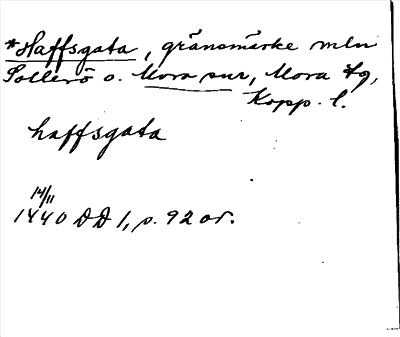 *Haffsgata, gränsmärke mln
Sollerö o. Mora snr, Mora tg,
Kopp. l.
haffsgata
14/11
1440 DD 1, s. 92 or.